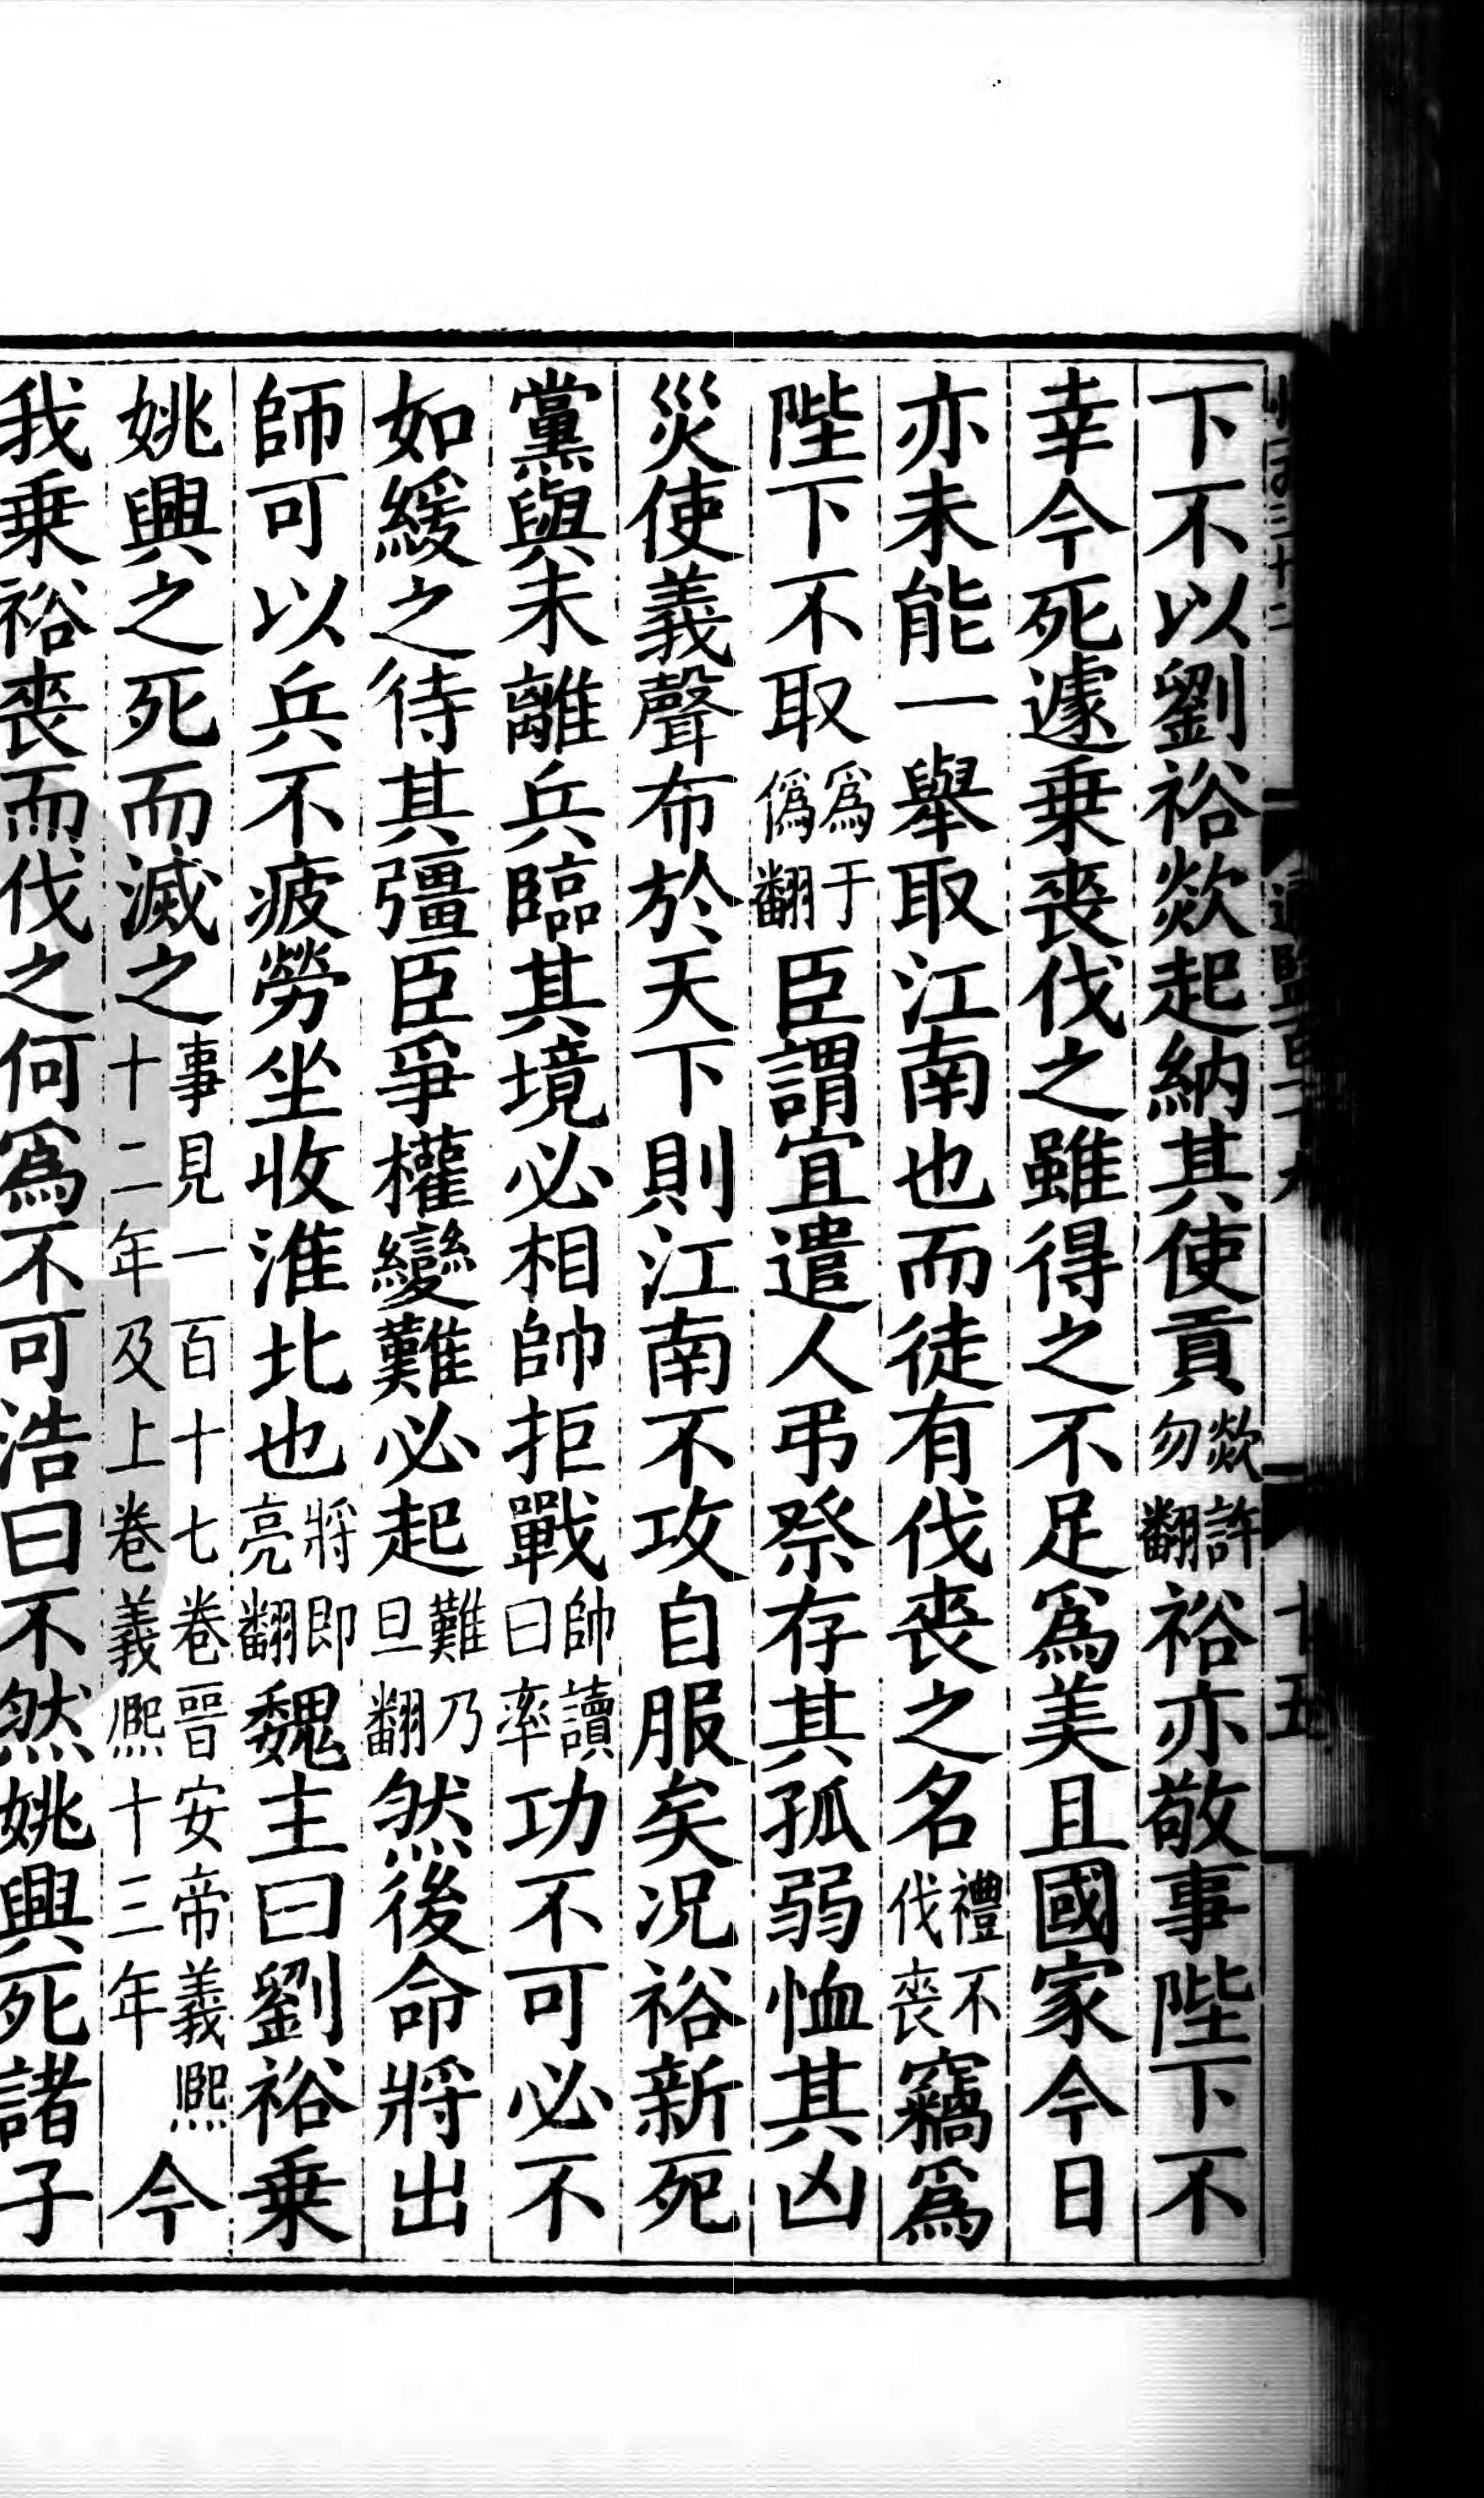 下不以劉裕欻起納其使貢欻許勿翻裕亦敬事陛下不
幸今死遽乗喪伐之雖得之不足爲美且國家今日
亦未能一舉取江南也而徒有伐喪之名禮不伐喪竊爲
陛下不取爲于僞翻臣謂宜遣人弔祭存其孤弱恤其凶
災使義聲布於天下則江南不攻自服矣况裕新死
黨與未離兵臨其境必相帥拒戰帥讀曰率功不可必不
如緩之待其彊臣爭權變難必起難乃旦翻然後命將出
師可以兵不疲勞坐收淮北也將即亮翻魏主曰劉裕乗
姚興之死而滅之事見一百十七卷晉安帝義熙十二年及上卷義熙十三年今
我乗裕喪而伐之何爲不可浩曰不然姚興死諸子